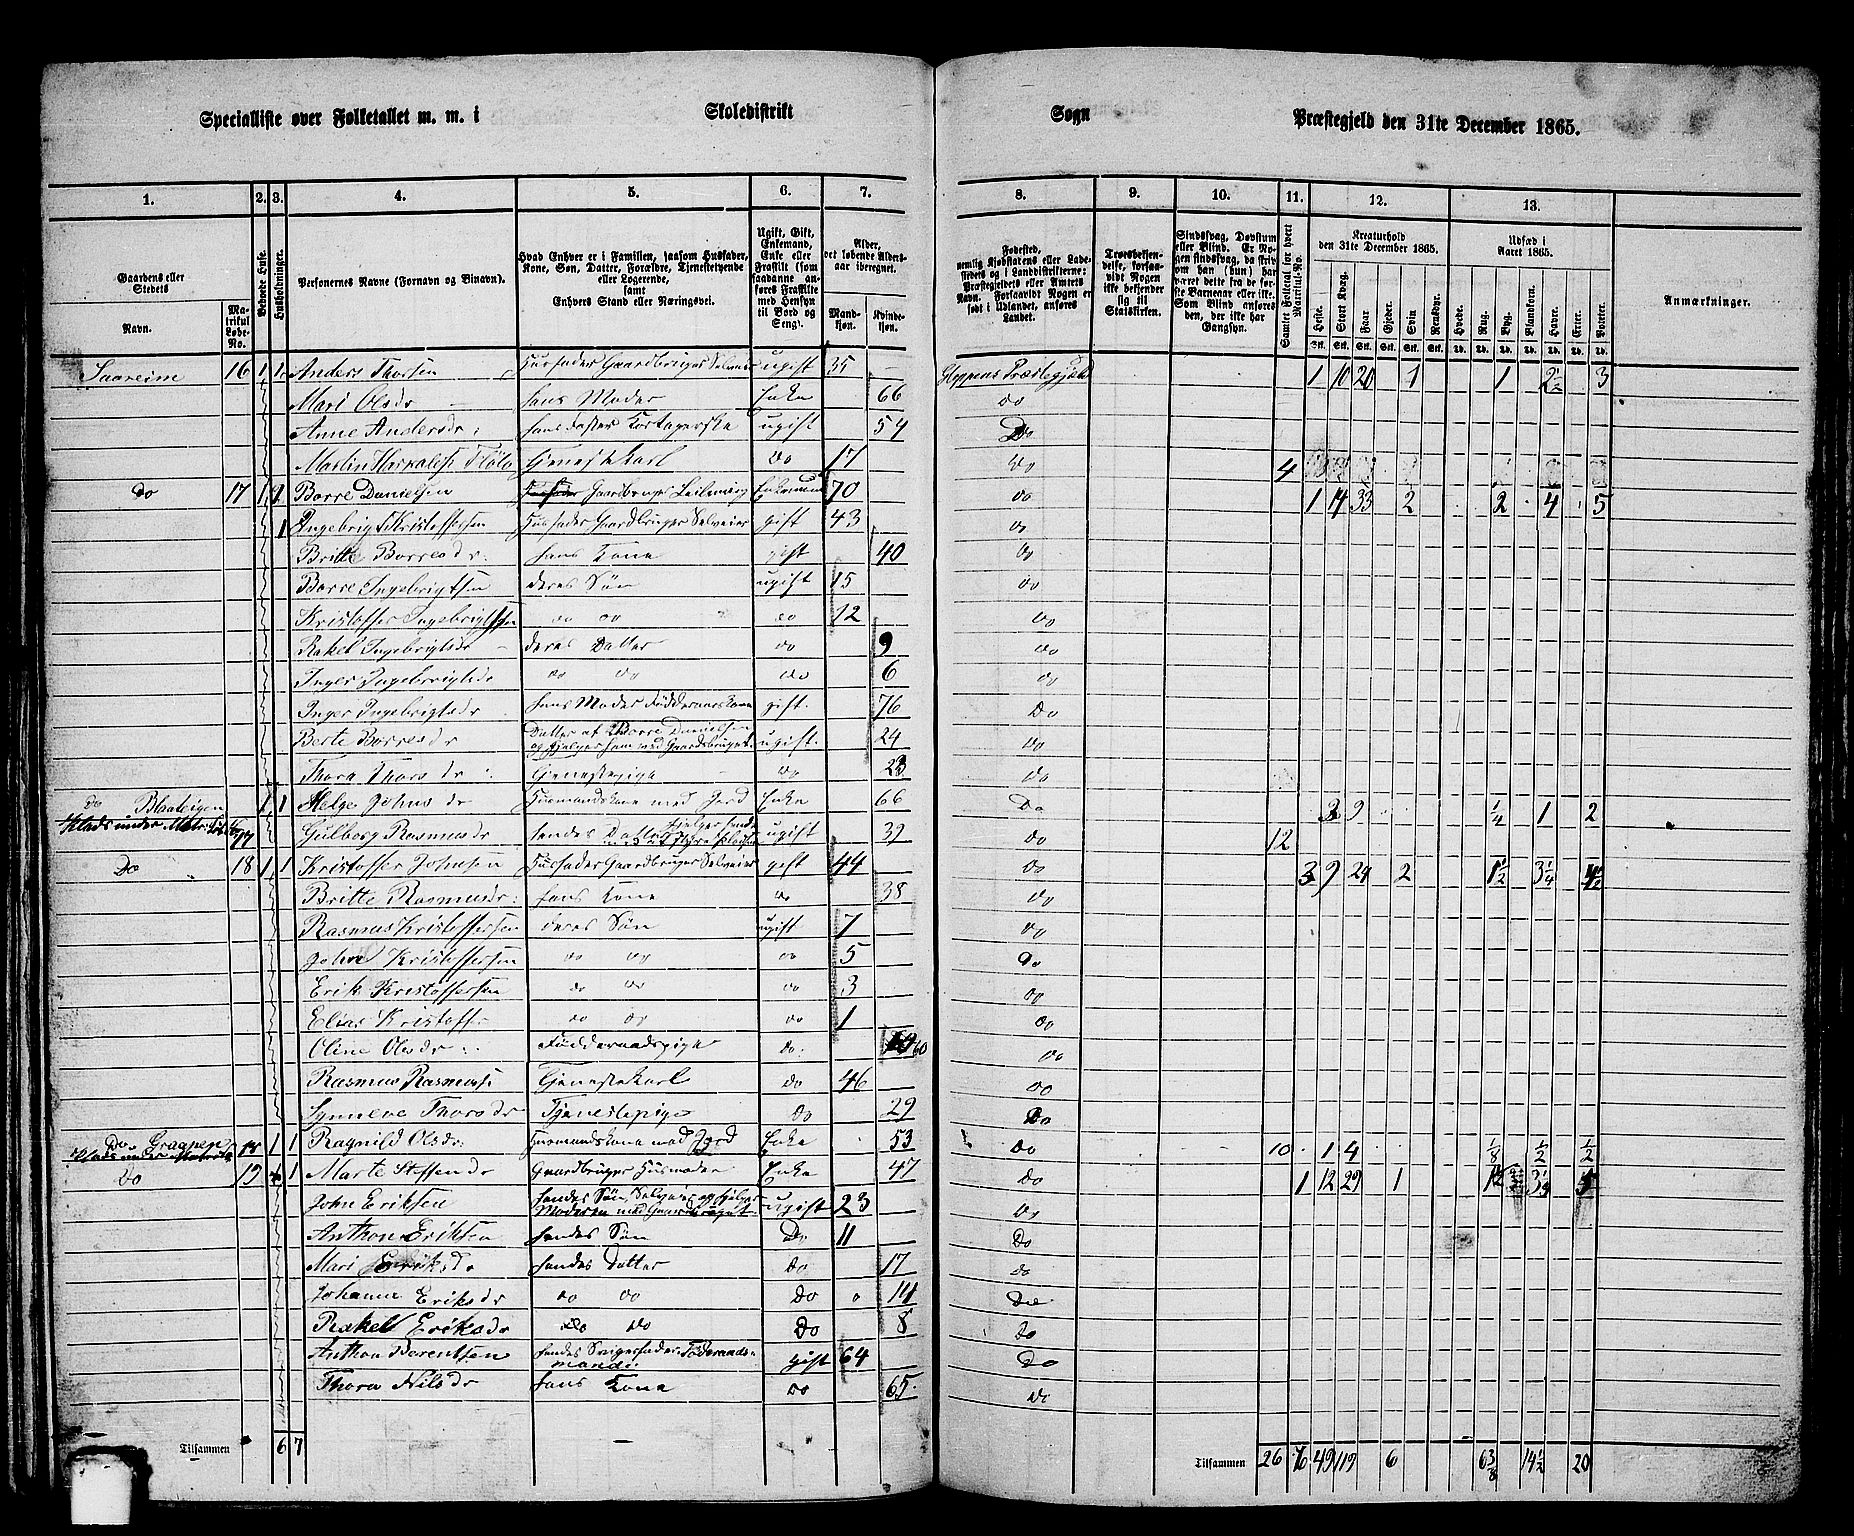 Specialliste over Folketallet m. m. i Skoledistrikt Sogn Præstegjeld den 31te December 1865.
1. 2. 3. 4. 5. 6. 7. 8. 9. 10. 11. 12. 13.
Gaardens eller Stedets Navn. Matrikul Løbe-No. Beboede Huse. Husholdninger.
Personernes Navne (Fornavn og Binavn).
Hvad Enhver er i Familien, saasom Husfader, Kone, Søn, Datter, Forældre, Tjenestetyende eller Logerende, samt Enhvers Stand eller Næringsvei.
Ugift, Gift, Enkemand, Enke eller Fraskilt (som saadanne anføres Fraskilte med Hensyn til Bord og Seng).
Alder, det løbende Alders-aar iberegnet. Mandkjøn. Kvindekjøn.
Fødested, nemlig Kjøbstadens eller Ladestedets og i Landdistrikterne: Præstegjeldets eller Amtets Navn. Forsaavidt Nogen er født i Udlandet, anføres Landet.
Troesbekjendelse, forsaavidt Nogen ikke bekjender sig til Statskirken.
Sindssvag, Døvstum eller Blind. Er Nogen sindssvag, da skrives om han (hun) har været dette fra de første Barneaar eller ikke. Som Blind anføres den, der ikke har Gangsyn.
Samlet Folketal for hvert Matrikul-No.
Kreaturhold den 31te December 1865. Heste. Stort Kvæg. Faar Gjeder. Svin Rensdyr.
Udsæd i Aaret 1865. Hvede. Rug. Byg. Blandkorn. Havre. Erter. Poteter.
Anmærkninger.
Saareime 16 1 1 Anders Thorsen Husfader Gaardbruger Selveier ugift 35 Gloppens Præstegjæld 1 10 20 1 1 2½ 3
Mari Olsdr hans Moder Enke 66 do
Anne Andersdr hans Faster ugift 54 Do
Martin Tjenestekarl Do 17 Do 4
Do 17 1 Børre Danielsen Gaardbruger Leilending Enkemand 70 do 1 14 33 2 2 4 5
1 Ingebrigt Kristoffersen Husfader Gaardbruger Selveier gift 43 do
Britte Børresdr. hans Kone gift 40 do
Børre Ingebrigtsen deres Søn ugift 15 do
Kristoffer Ingebrigtsen do do do 12 do
Rakel Ingebrigtsdr deres Datter do 9 do
Inger Ingebrigtsdr do do do 6 do
Inger Ingebrigtsdr hans Moder Føderaadskone gift. 76 Do
Berte Børresdr Datter af Børre Danielsen og hjelper ham med Gaardsbruget. ugift. 24 do
Thora Thorsdr Tjenestepige Do 23 do
Do 1 1 Helge Johnsdr Husmandskone med Jord Enke 66 Do 3 9 ¼ 1 2
Gulborg Rasmusdr hendes Datter ugift 39 do 12
Do 18 1 1 Kristoffer Johnsen Husfader Gaardbruger Selveier gift 44 do 3 9 24 2 1½ 3¼
Britte Rasmusdr hans Kone Do 38 do
Rasmus Kristoffersen deres Søn ugift 7 do
John Kristoffersen do do do 5 do
Erik Kristoffersen do do do 3 do
Elias Kristoffe do do do 1 do
Oline Olsdr Føderaadspige Do 60 do
Rasmus Rasmuss Tjenestekarl Do 46 do
Synneve Thorsdr Tjenestepige Do 29 Do
Do 18 1 1 Ragnild Olsdr Husmandskone med Jord Enke 53 Do 10 1 4 ⅛ ½ ½
Do 19 1 Marte Steffensdr Gaardbruger Husmoder Enke 47 Do 1 12 29 1
John Eriksen hendes Søn, Selveier og hjelper Moderen med Gaardsbruget ugift 23 do
Anthon Eriksen hendes Søn Do 11 Do
Mari Eriksdr hendes Datter Do 17 do
Johanne Eriksdr do do Do 14 Do
Rakel Eriksdr do do Do 8 Do
Anthon Berentsen hendes Svigerfader Føderaadsmand gift 64 Do
Thora Nilsdr hans Kone Do 65 Do
Tilsammen 6 7 Tilsammen 26 49 119 6 6⅜ 14½ 20